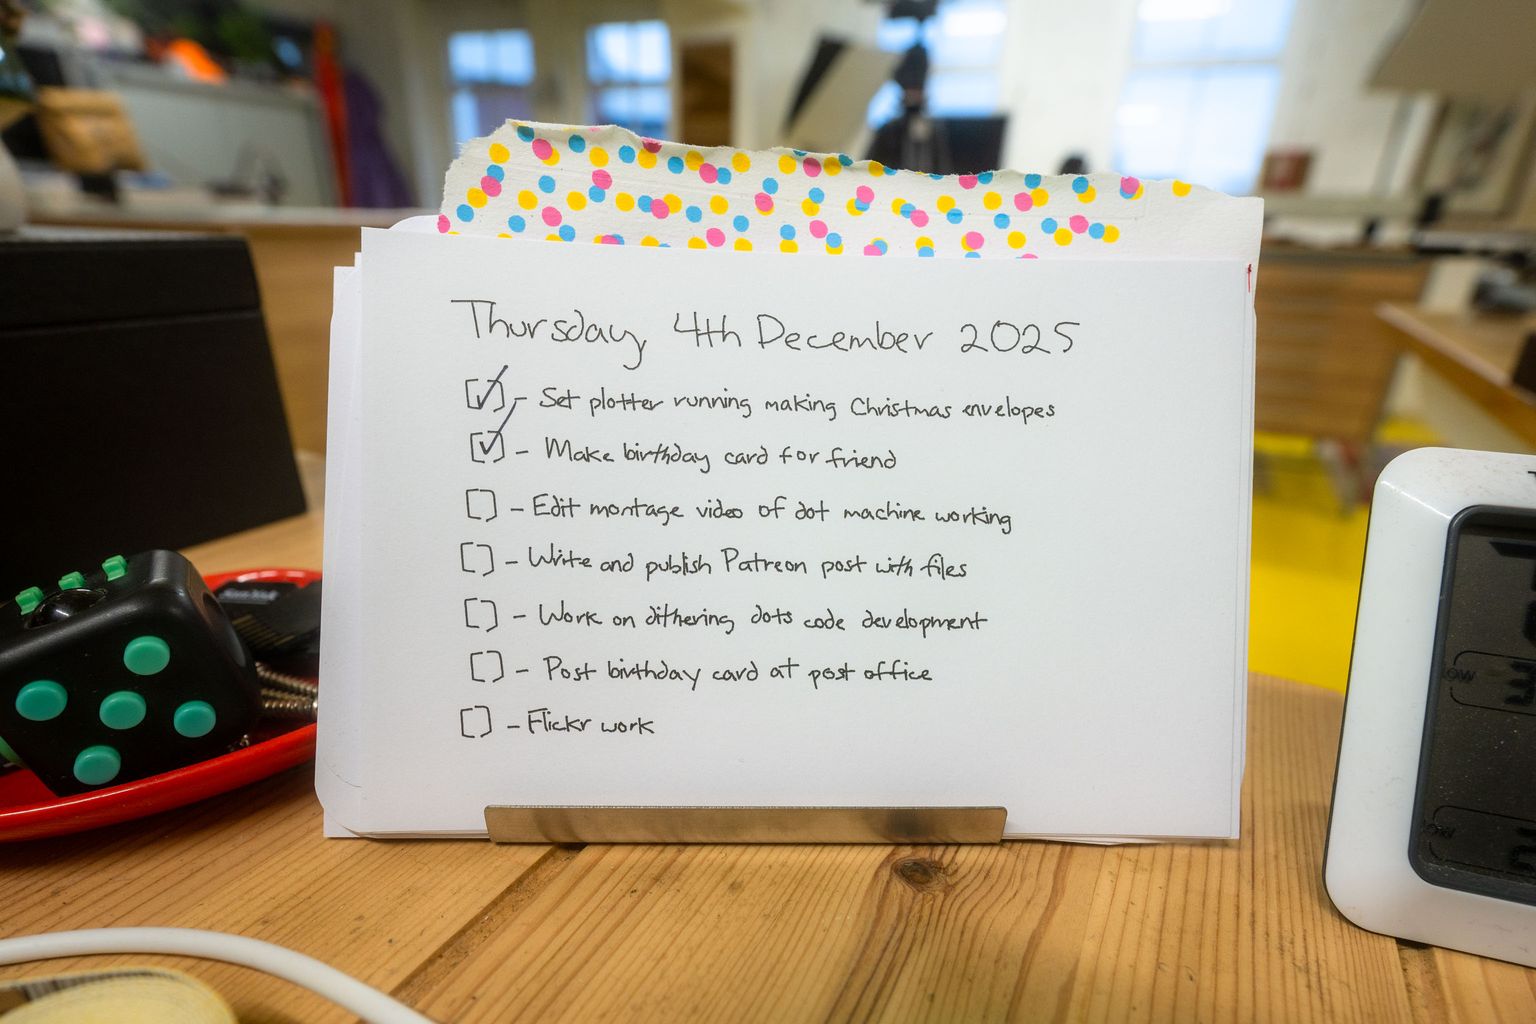 Thursday, 4th December 2025
[✓] - Set plotter running making Christmas envelopes
[✓] - Make birthday card for friend
[ ] - Edit montage video of dot machine working
[ ] - Write and publish Patreon post with files
[ ] - Work on dithering dots code development
[ ] - Post birthday card at post office
[ ] - Flickr work
SanDisk
LOW
LOW